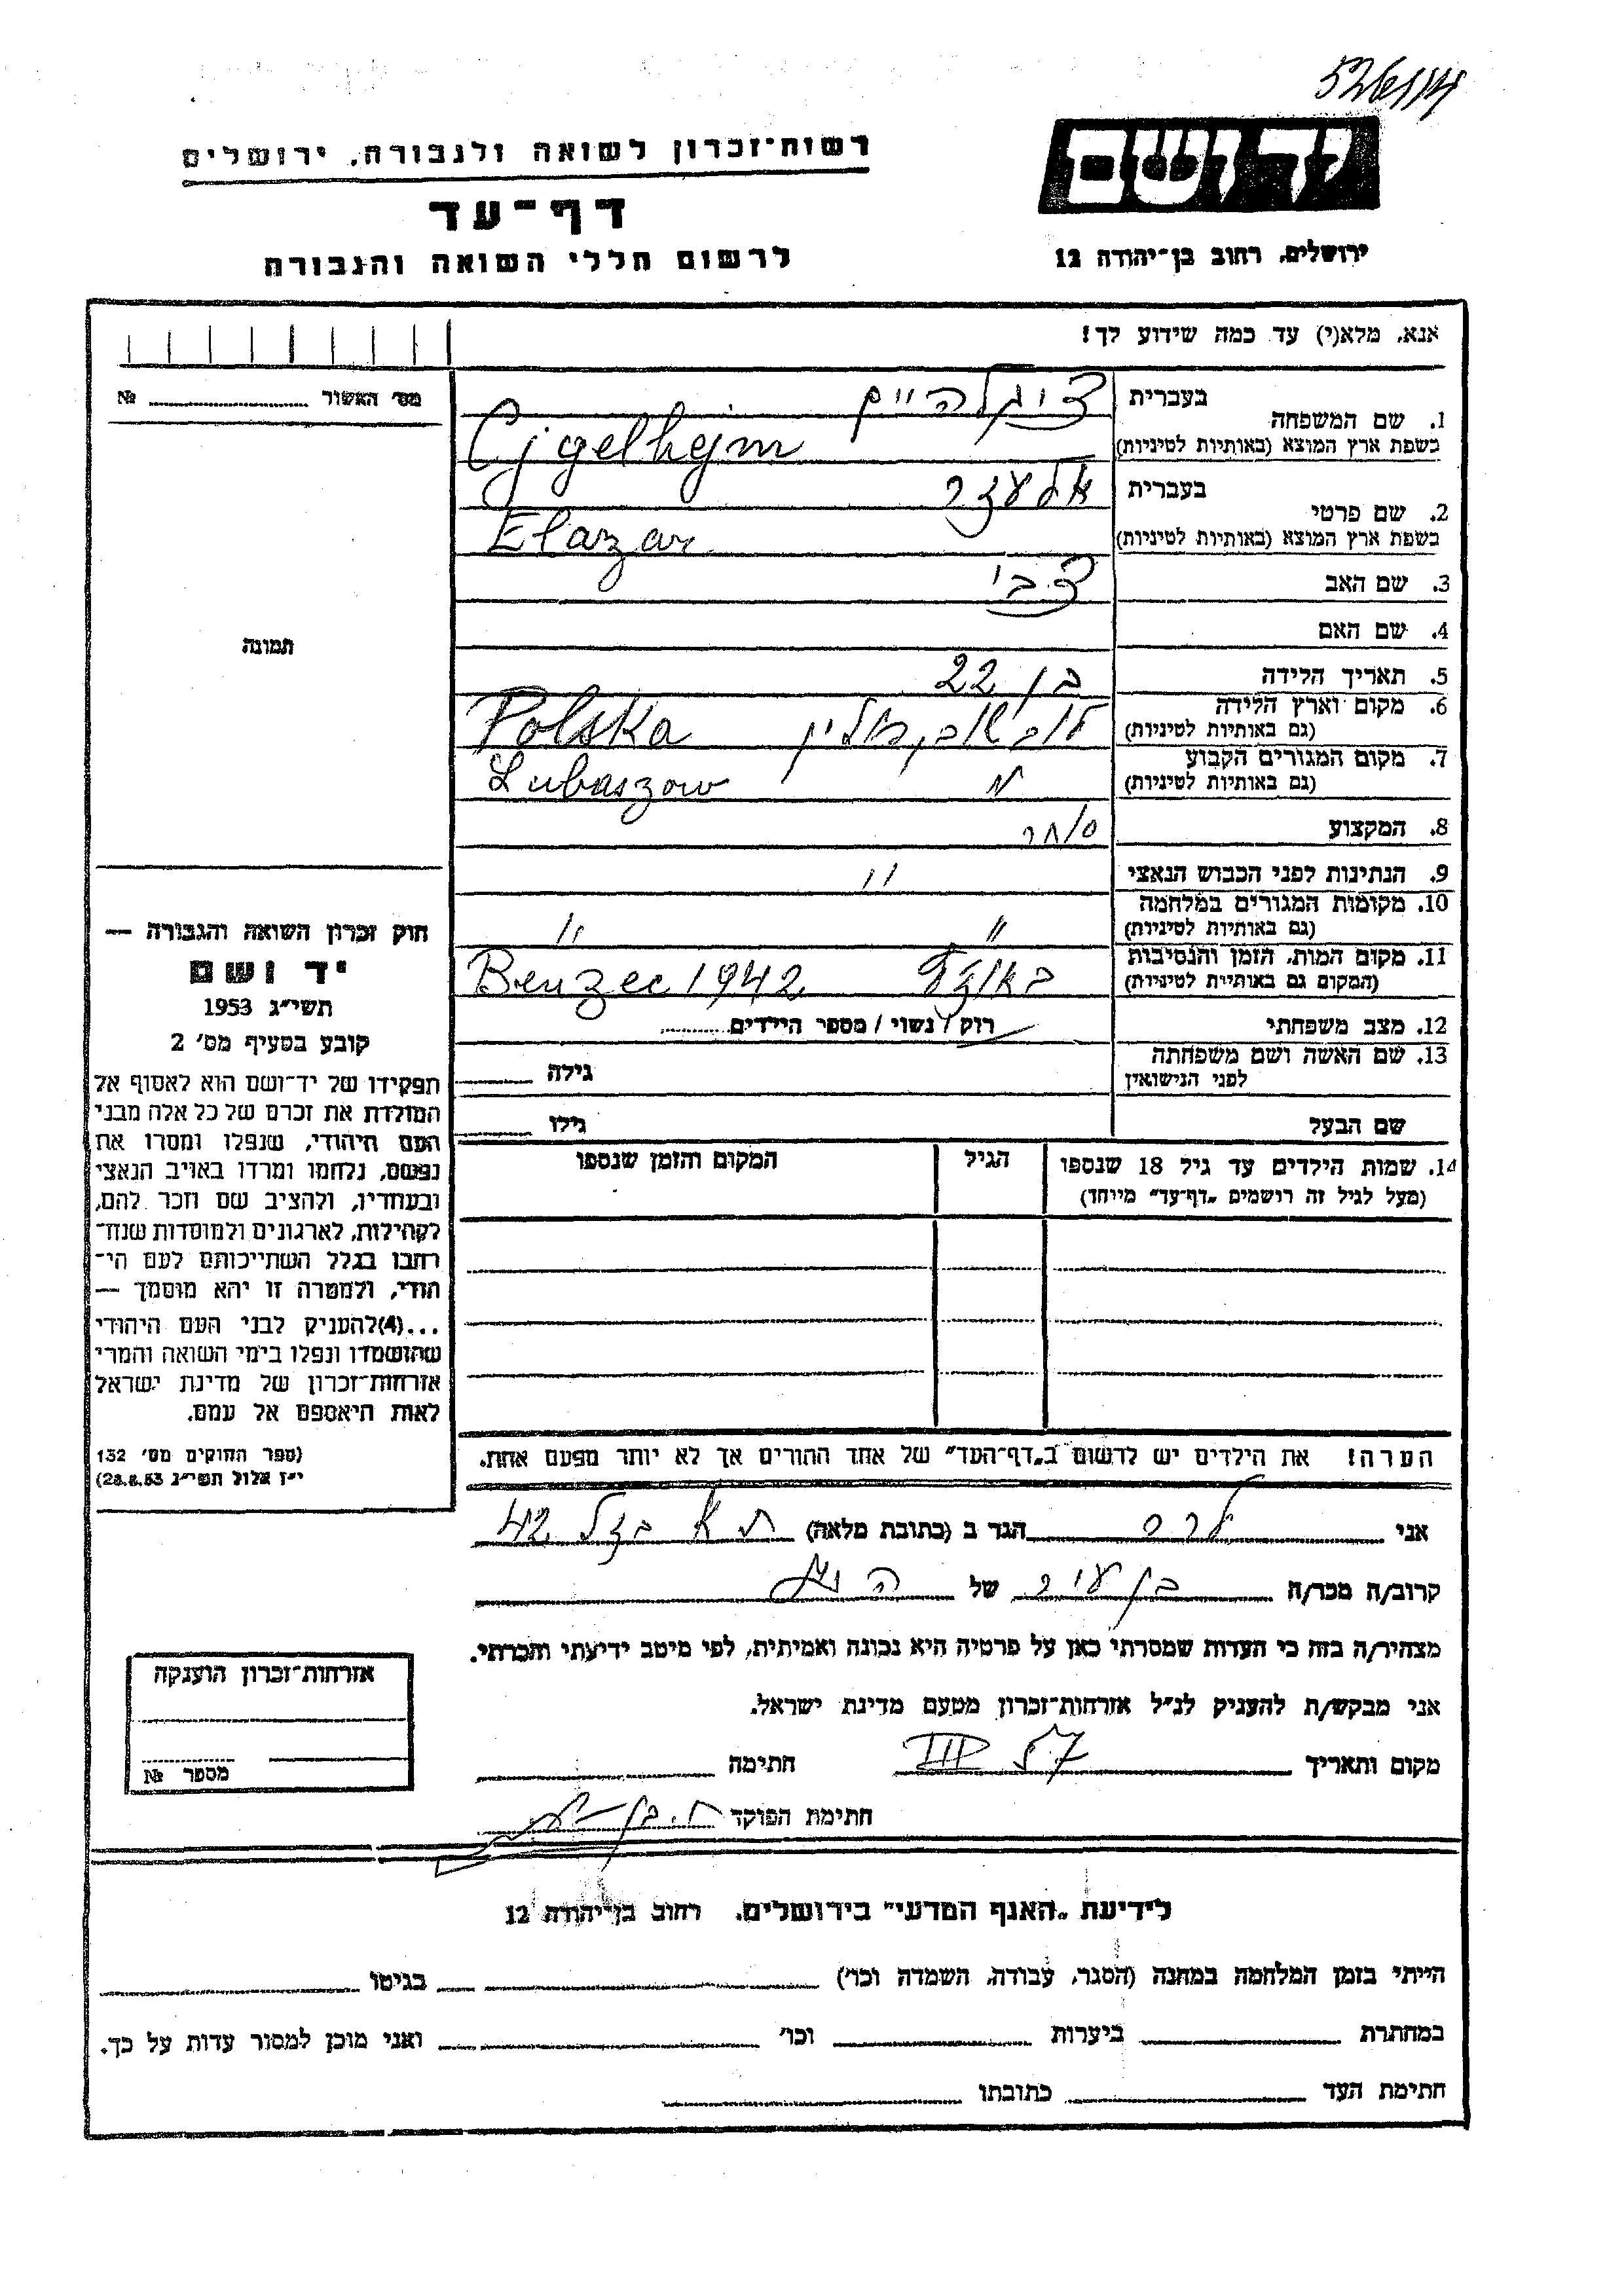 רשות־זכרון לשואה ולגבורה, ירושלים
דף־עד
לרשום חללי השואה והגבורה
יד ושם
ירושלים, רחוב בן־יהודה 12
אנא, מלא(י) עד כמה שידוע לך!
1. שם המשפחה
בעברית ציגלהיים
בשפת ארץ המוצא (באותיות לטיניות) Cygelhejm
2. שם פרטי
בעברית אלעזר
בשפת ארץ המוצא (באותיות לטיניות) Elazar
3. שם האב צבי
4. שם האם
5. תאריך הלידה בן 22
6. מקום וארץ הלידה
(גם באותיות לטיניות) Polska
7. מקום המגורים הקבוע
(גם באותיות לטיניות) Lubaszow
8. המקצוע סוחר
9. הנתינות לפני הכבוש הנאצי "
10. מקומות המגורים במלחמה
(גם באותיות לטיניות) " "
11. מקום המות, הזמן והנסיבות
(המקום גם באותיית לטיניות) Benzec 1942
12. מצב משפחתי רוק / נשוי / מספר הילדים
13. שם האשה ושם משפחתה
לפני הנישואין גילה
שם הבעל גילו
14. שמות הילדים עד גיל 18 שנספו
(מעל לגיל זה רושמים „דף־עד" מייחד)
הגיל
המקום והזמן שנספו
הערה! את הילדים יש לרשום ב„דף־העד" של אחד ההורים אך לא יותר מפעם אחת.
מס׳ האשור №
תמונה
חוק זכרון השואה והגבורה —
יד ושם
תשי״ג 1953
קובע בסעיף מס׳ 2
תפקידו של יד־ושם הוא לאסוף אל
המולדת את זכרם של כל אלה מבני
העם היהודי, שנפלו ומסרו את
נפשם, נלחמו ומרדו באויב הנאצי
ובעוזריו, ולהציב שם וזכר להם,
לקהילות, לארגונים ולמוסדות שנח־
רבו בגלל השתייכותם לעם הי־
הודי, ולמטרה זו יהא מוסמך —
...(4)להעניק לבני העם היהודי
שהושמדו ונפלו בימי השואה והמרי
אזרחות־זכרון של מדינת ישראל
לאות היאספם אל עמם.
(ספר החוקים מס׳ 132
י״ז אלול תשי״ג 28.8.53)
אני לרר הגר ב (כתובת מלאה) ת א 42
קרוב/ה מכר/ה בן עיר של
מצהיר/ה בזה כי העדות שמסרתי כאן על פרטיה היא נכונה ואמיתית, לפי מיטב ידיעתי והכרתי.
אני מבקש/ת להעניק לנ״ל אזרחות־זכרון מטעם מדינת ישראל.
מקום ותאריך III 57 חתימה
חתימת הפוקד
אזרחות־זכרון הוענקה
מספר №
לידיעת „האגף המדעי" בירושלים. רחוב בן־יהודה 12
הייתי בזמן המלחמה במחנה (הסגר, עבודה, השמדה וכו׳) בגיטו
במחתרת ביערות וכו׳ ואני מוכן למסור עדות על כך.
חתימת העד כתובתו